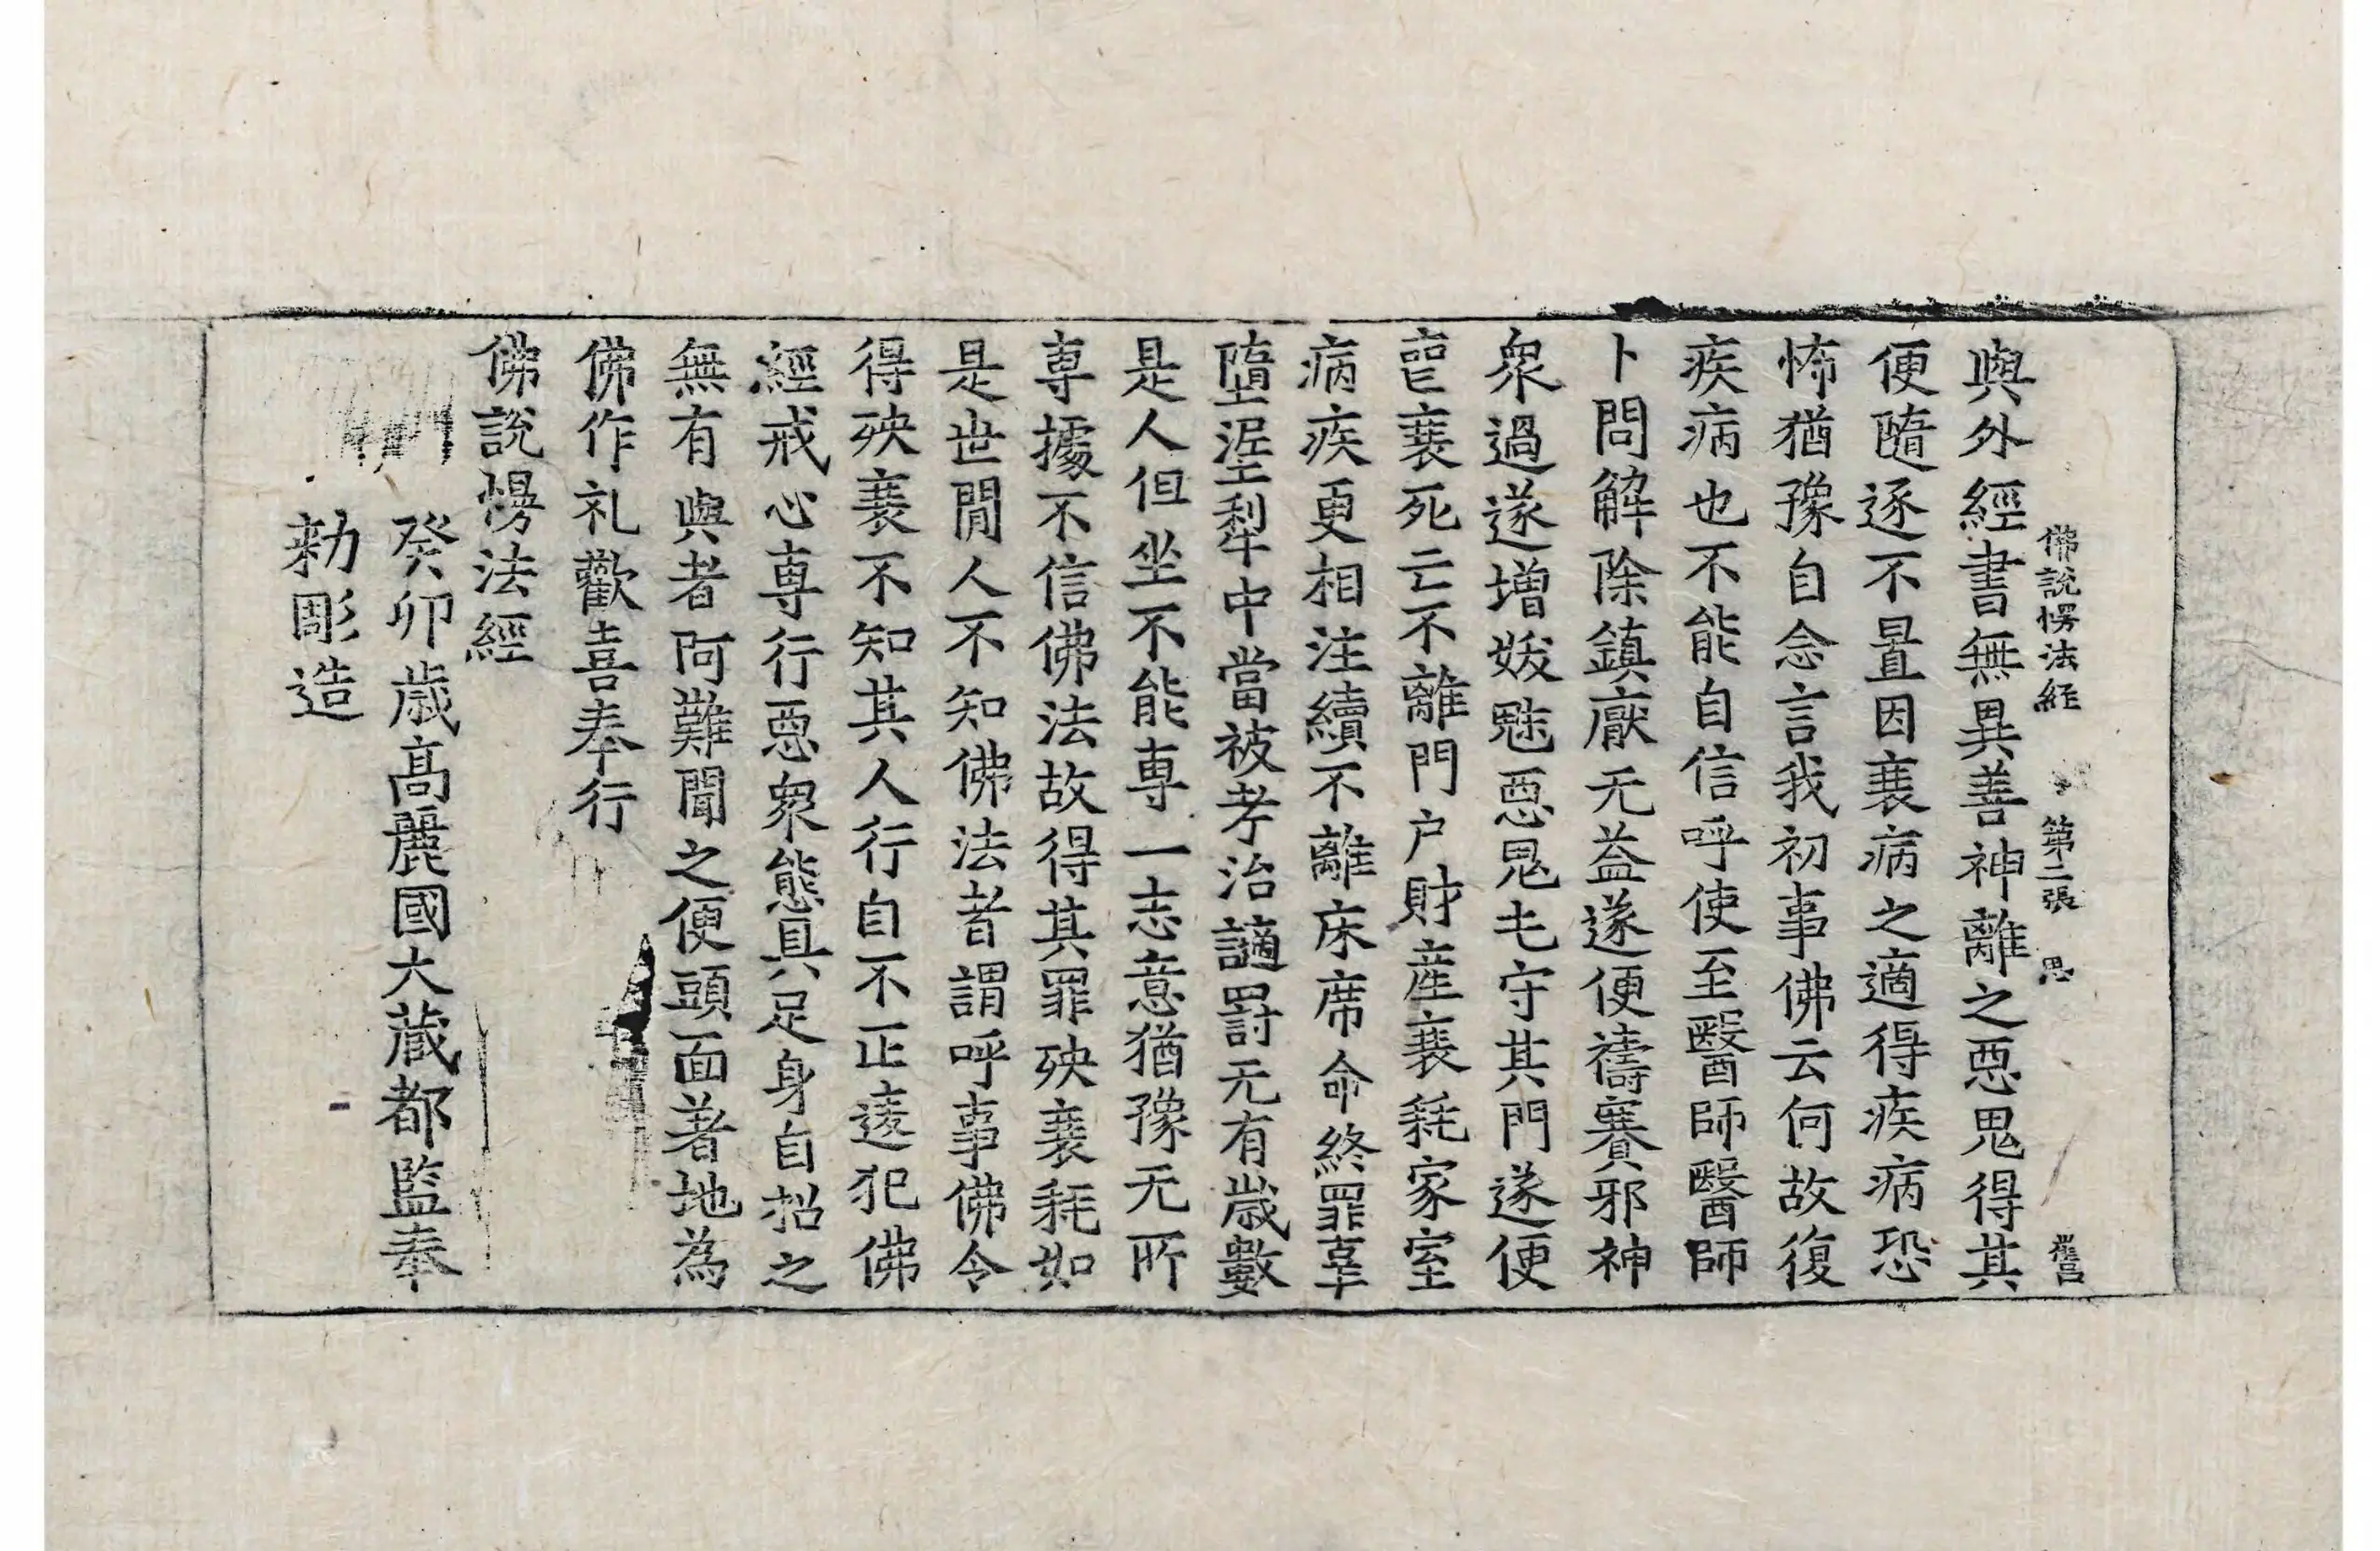 佛說愣法経 第二張 思
與外經書無異善神離之惡鬼得其
便隨逐不置因衰病之適得疾病恐
怖猶豫自念言我初事佛云何故復
疾病也不能自信呼使至醫師醫師
卜問解除鎮厭无益遂便禱賽邪神
衆過遂增妭魅惡鬼屯守其門遂便
衰死亡不離門户財産衰耗家室
病疾更相注續不離床席命終罪辜
墮泥犁中當被考治讁罰无有歲數
是人但坐不能專一志意猶豫无所
專據不信佛法故得其罪殃衰耗如
是世間人不知佛法者謂呼事佛令
得殃衰不知其人行自不正違犯佛
經戒心專行惡衆態具足身自招之
無有與者阿難聞之便頭面著地為
佛作礼歡喜奉行
佛說愣法經
癸卯歲高麗國大藏都監奉
勑彫造